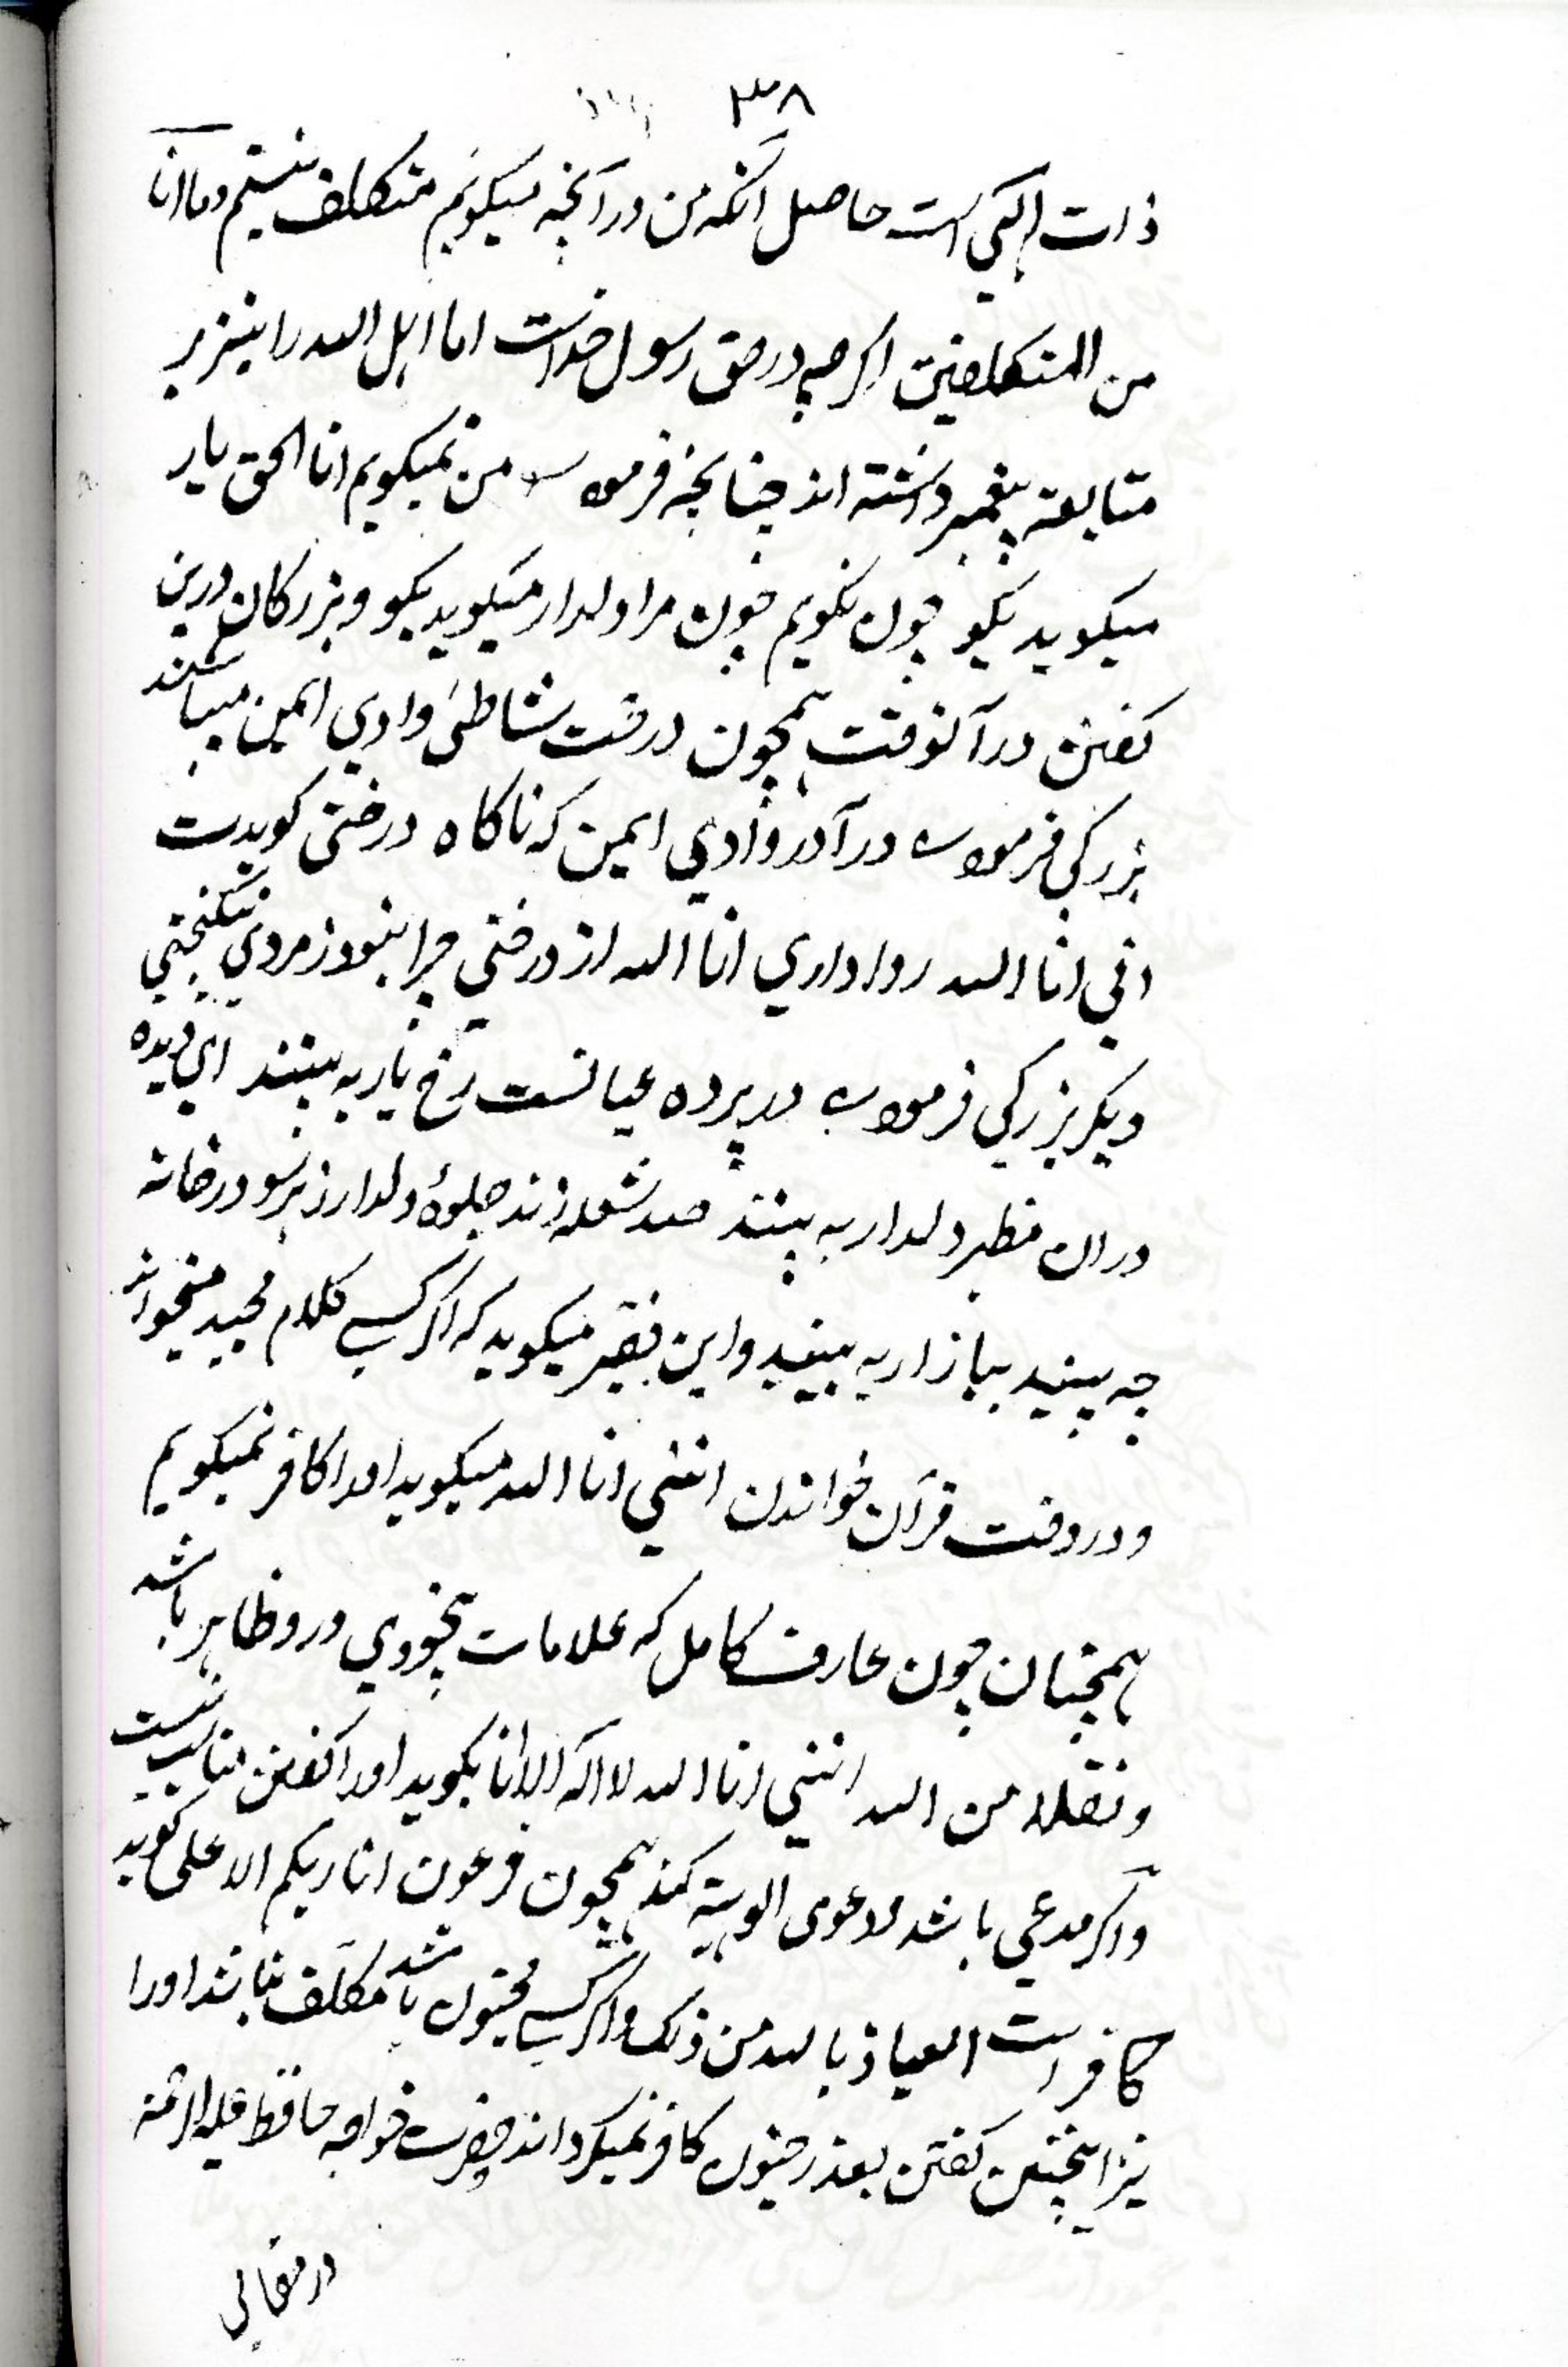 ۳۸
ذات الهی است حاصل آنکه من در آنچه میکویم متکلف نیستم وما انا
من المتکلفین اکرچه در حق رسول خداست اما اهل الله را نیز بر
متابعة پیغمبر داشته اند چنانچه فرموده من نمیکویم انا الحق یار
میکوید بکو چون نکویم چون مرا دلدار میکوید بکو و بزرکان درین
کفتن در آنوقت همچون درخت شاطئ وادی ایمن میباشند
بزرکی فرموده در آ در وادی ایمن که ناکاه درختی کویدت
انی انا الله روا داری انا الله از درختی چرا نبود ز مردی نیکبختی
دیکر بزرکی فرموده در پرده عیانست رخ یار به بینند ای دیده
دران مظهر دلدار به بینند صد شعله زند جلوهٔ دلدار ز هرسو در خانه
چه بینید ببازار به بینید و این فقیر میکوید که اکر کسی کلام مجید میخواند
و در وقت قرآن خواندن اننی انا الله میکوید او را کافر نمیکویم
همچنان چون عارف کامل که علامات بیخودی درو ظاهر باشد
و نقلا من الله اننی انا الله لا اله الا انا بکوید او را کفتن مناسب نیست
و اکر مدعی باشد و دعوی الوهیة کند همچون فرعون انا ربکم الاعلی کوید
کافر است العیاذ بالله من ذلک و اکر کسی مجنون باشد مکلف نباشد او را
نیز اینچنین کفتن بعذر جنون کافر نمیکرداند حضرت خواجه حافظ علیه الرحمة
در مقالی